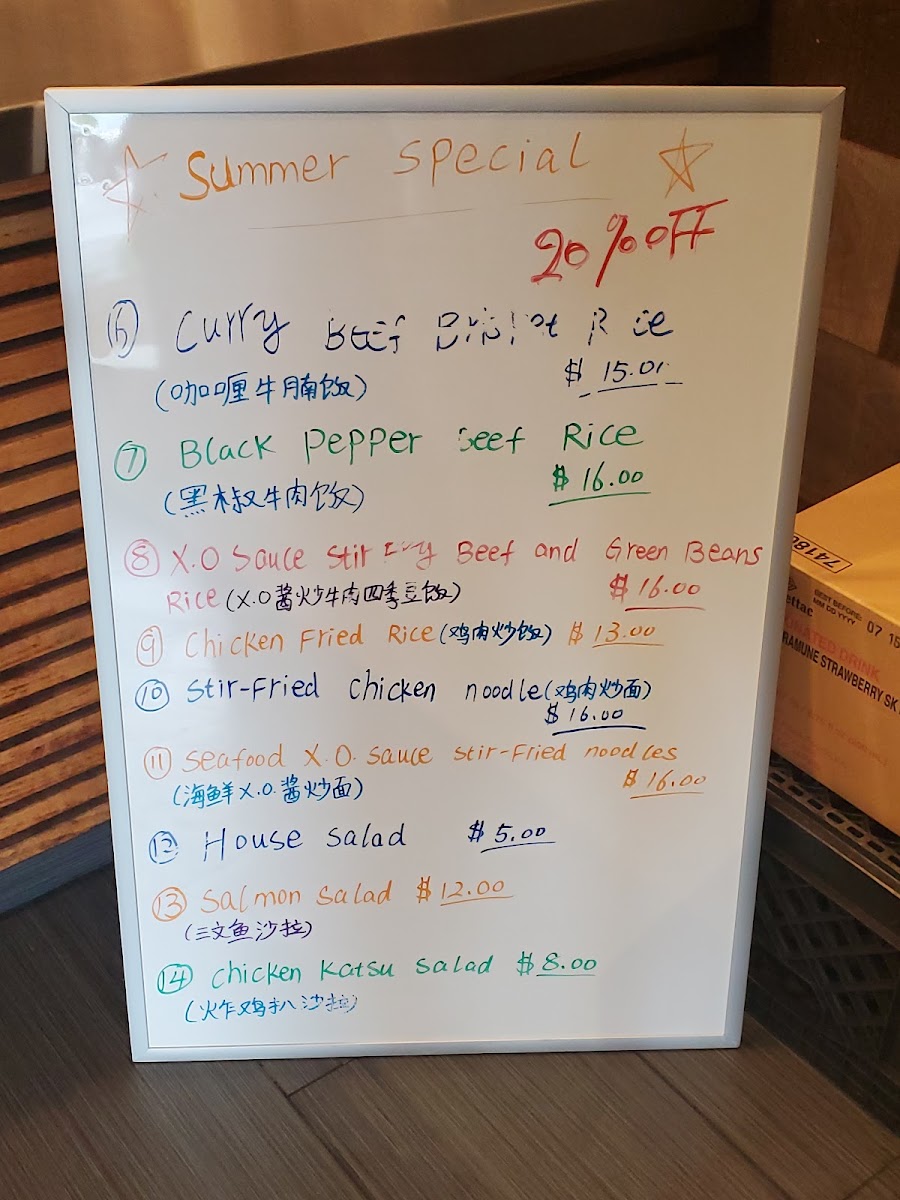 Summer special
20% OFF
⑥ Curry Beef Brisket Rice
(咖喱牛腩饭)
$ 15.00
⑦ Black Pepper Beef Rice
$ 16.00
(黑椒牛肉饭)
⑧ X.O Sauce Stir Fry Beef and Green Beans
Rice (X.O酱炒牛肉四季豆饭) $ 16.00
⑨ Chicken Fried Rice (鸡肉炒饭) $ 13.00
⑩ Stir-Fried chicken noodle (鸡肉炒面)
$ 16.00
⑪ Seafood X.O. sauce stir-Fried noodles
(海鲜X.O.酱炒面) $ 16.00
⑫ House salad $ 5.00
⑬ Salmon Salad $ 12.00
(三文鱼沙拉)
⑭ chicken Katsu salad $ 8.00
(炸鸡扒沙拉)
74180
BEST BEFORE:
MM DD YYYY 07 15
DRINK
RAMUNE STRAWBERRY SK